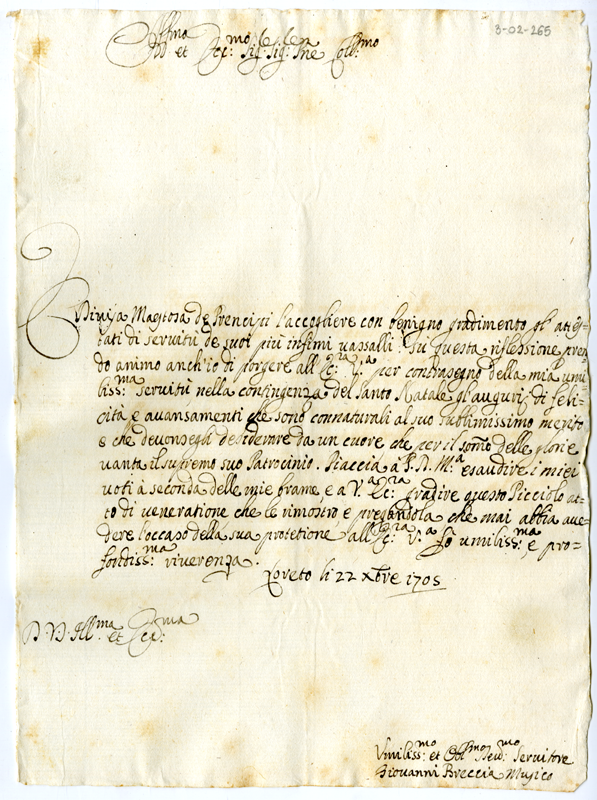 3-02-265
Ill.mo et Ecc:mo Sig: Sig: Pne Coll.mo
Divisa Maestosa de Prencipi l'accogliere con benigno gradimento gl' attes=
tati di servitù de suoi più infimi vassalli: sù questa riflessione pren
do animo anch'io di porgere all'Ecc:za V.a per contrasegno della mia umi
liss:ma servitù nella contingenza del Santo Natale gl'augurij di feli=
cità e avansamenti che sono connaturali al suo sublimissimo merito
e che devonsegli desiderare da un cuore che per il somo delle glorie
vanta il supremo suo Patrocinio. Piaccia à S. D. M.à esaudire i miei
voti à seconda delle mie brame e a V.a Ecc:za gradire questo Picciolo at=
to di veneratione che le rimostro e pregandola che mai abbia a ve=
dere l'occaso della sua protetione, all'Ecc:za V.a fò umiliss:ma e pro=
fondiss:ma riverenza.
Loreto li 22 Xbre 1705
D. V. Ill.ma et Ecc:ma
Umiliss:mo et Obl.mo Dev:mo Servitore
Giovanni Breccia Musico